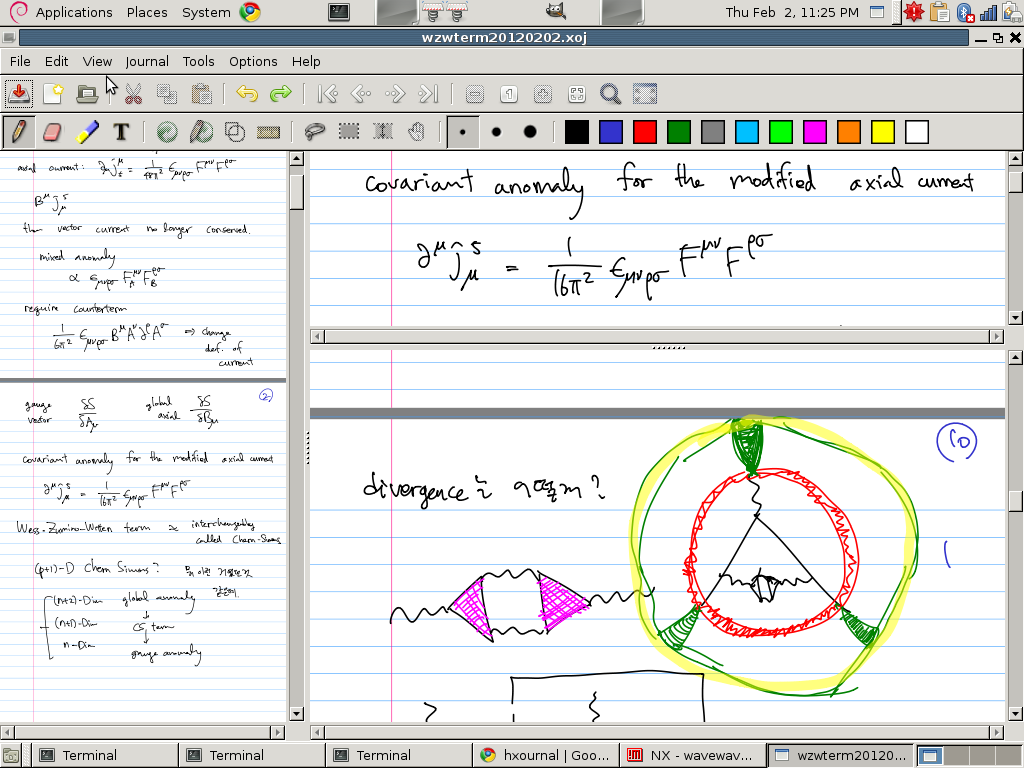 Applications Places System Thu Feb 2, 11:25 PM
wzwterm20120202.xoj
File Edit View Journal Tools Options Help
axial current:
B^μ j_μ^5
then vector current no longer conserved.
mixed anomaly
∝ ε_μνρσ F_A^μν F_B^ρσ
require counterterm
1/6π² ε_μνρσ B^μ A^ν ∂^ρ A^σ ⇒ change
def. of
current
②
gauge vector δS/δA_μ global axial δS/δB_μ
covariant anomaly for the modified axial current
∂^μ j_μ^5 = 1/16π² ε_μνρσ F^μν F^ρσ
Wess-Zumino-Witten term interchangeably
called Chern-Simons
(p+1)-D Chern Simons?
(n+2)-Dim global anomaly
(n+1)-Dim CS term
n-Dim gauge anomaly
covariant anomaly for the modified axial current
∂^μ ĵ_μ^5 = 1/16π² ε_μνρσ F^μν F^ρσ
divergence는
10
Terminal Terminal Terminal hxournal | Goo... NX - wavewav... wzwterm20120...